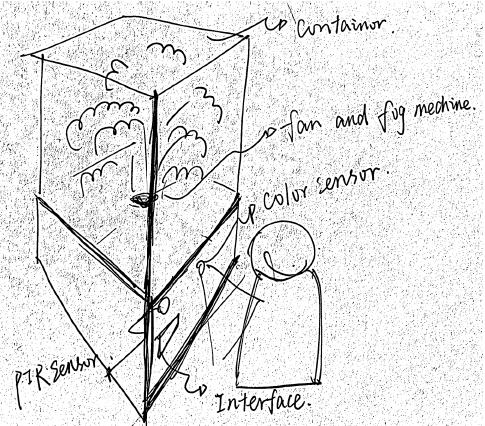 Container.
fan and fog mechine.
Color sensor.
PIR Sensor.
Interface.